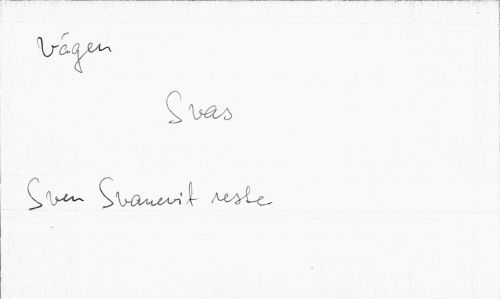 Vágen
Svas
Sven Svanevit reste